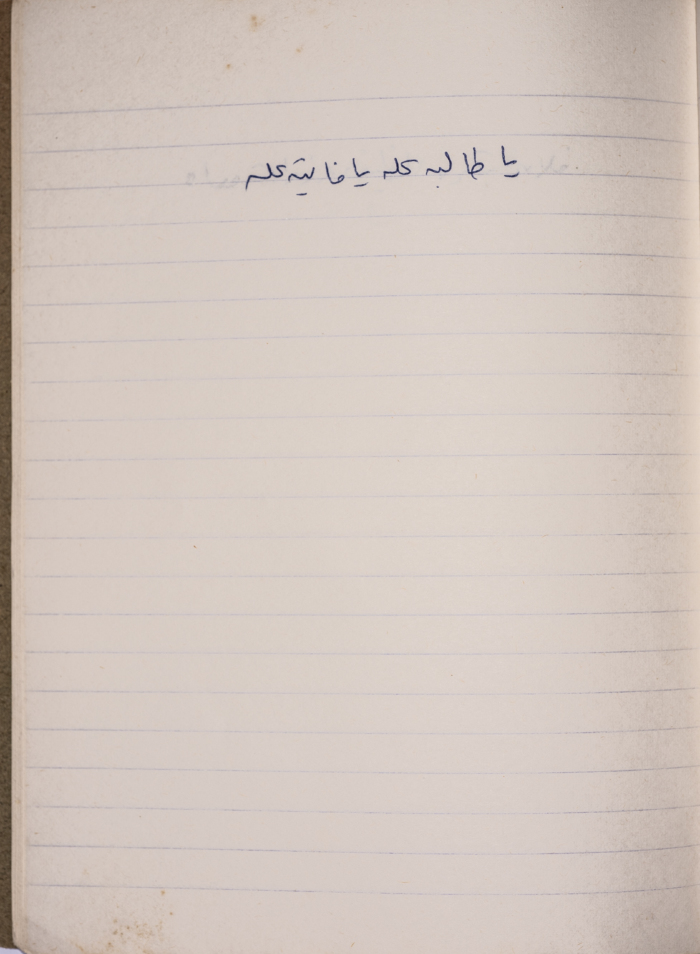 يا طالبه كله يا فايته كله